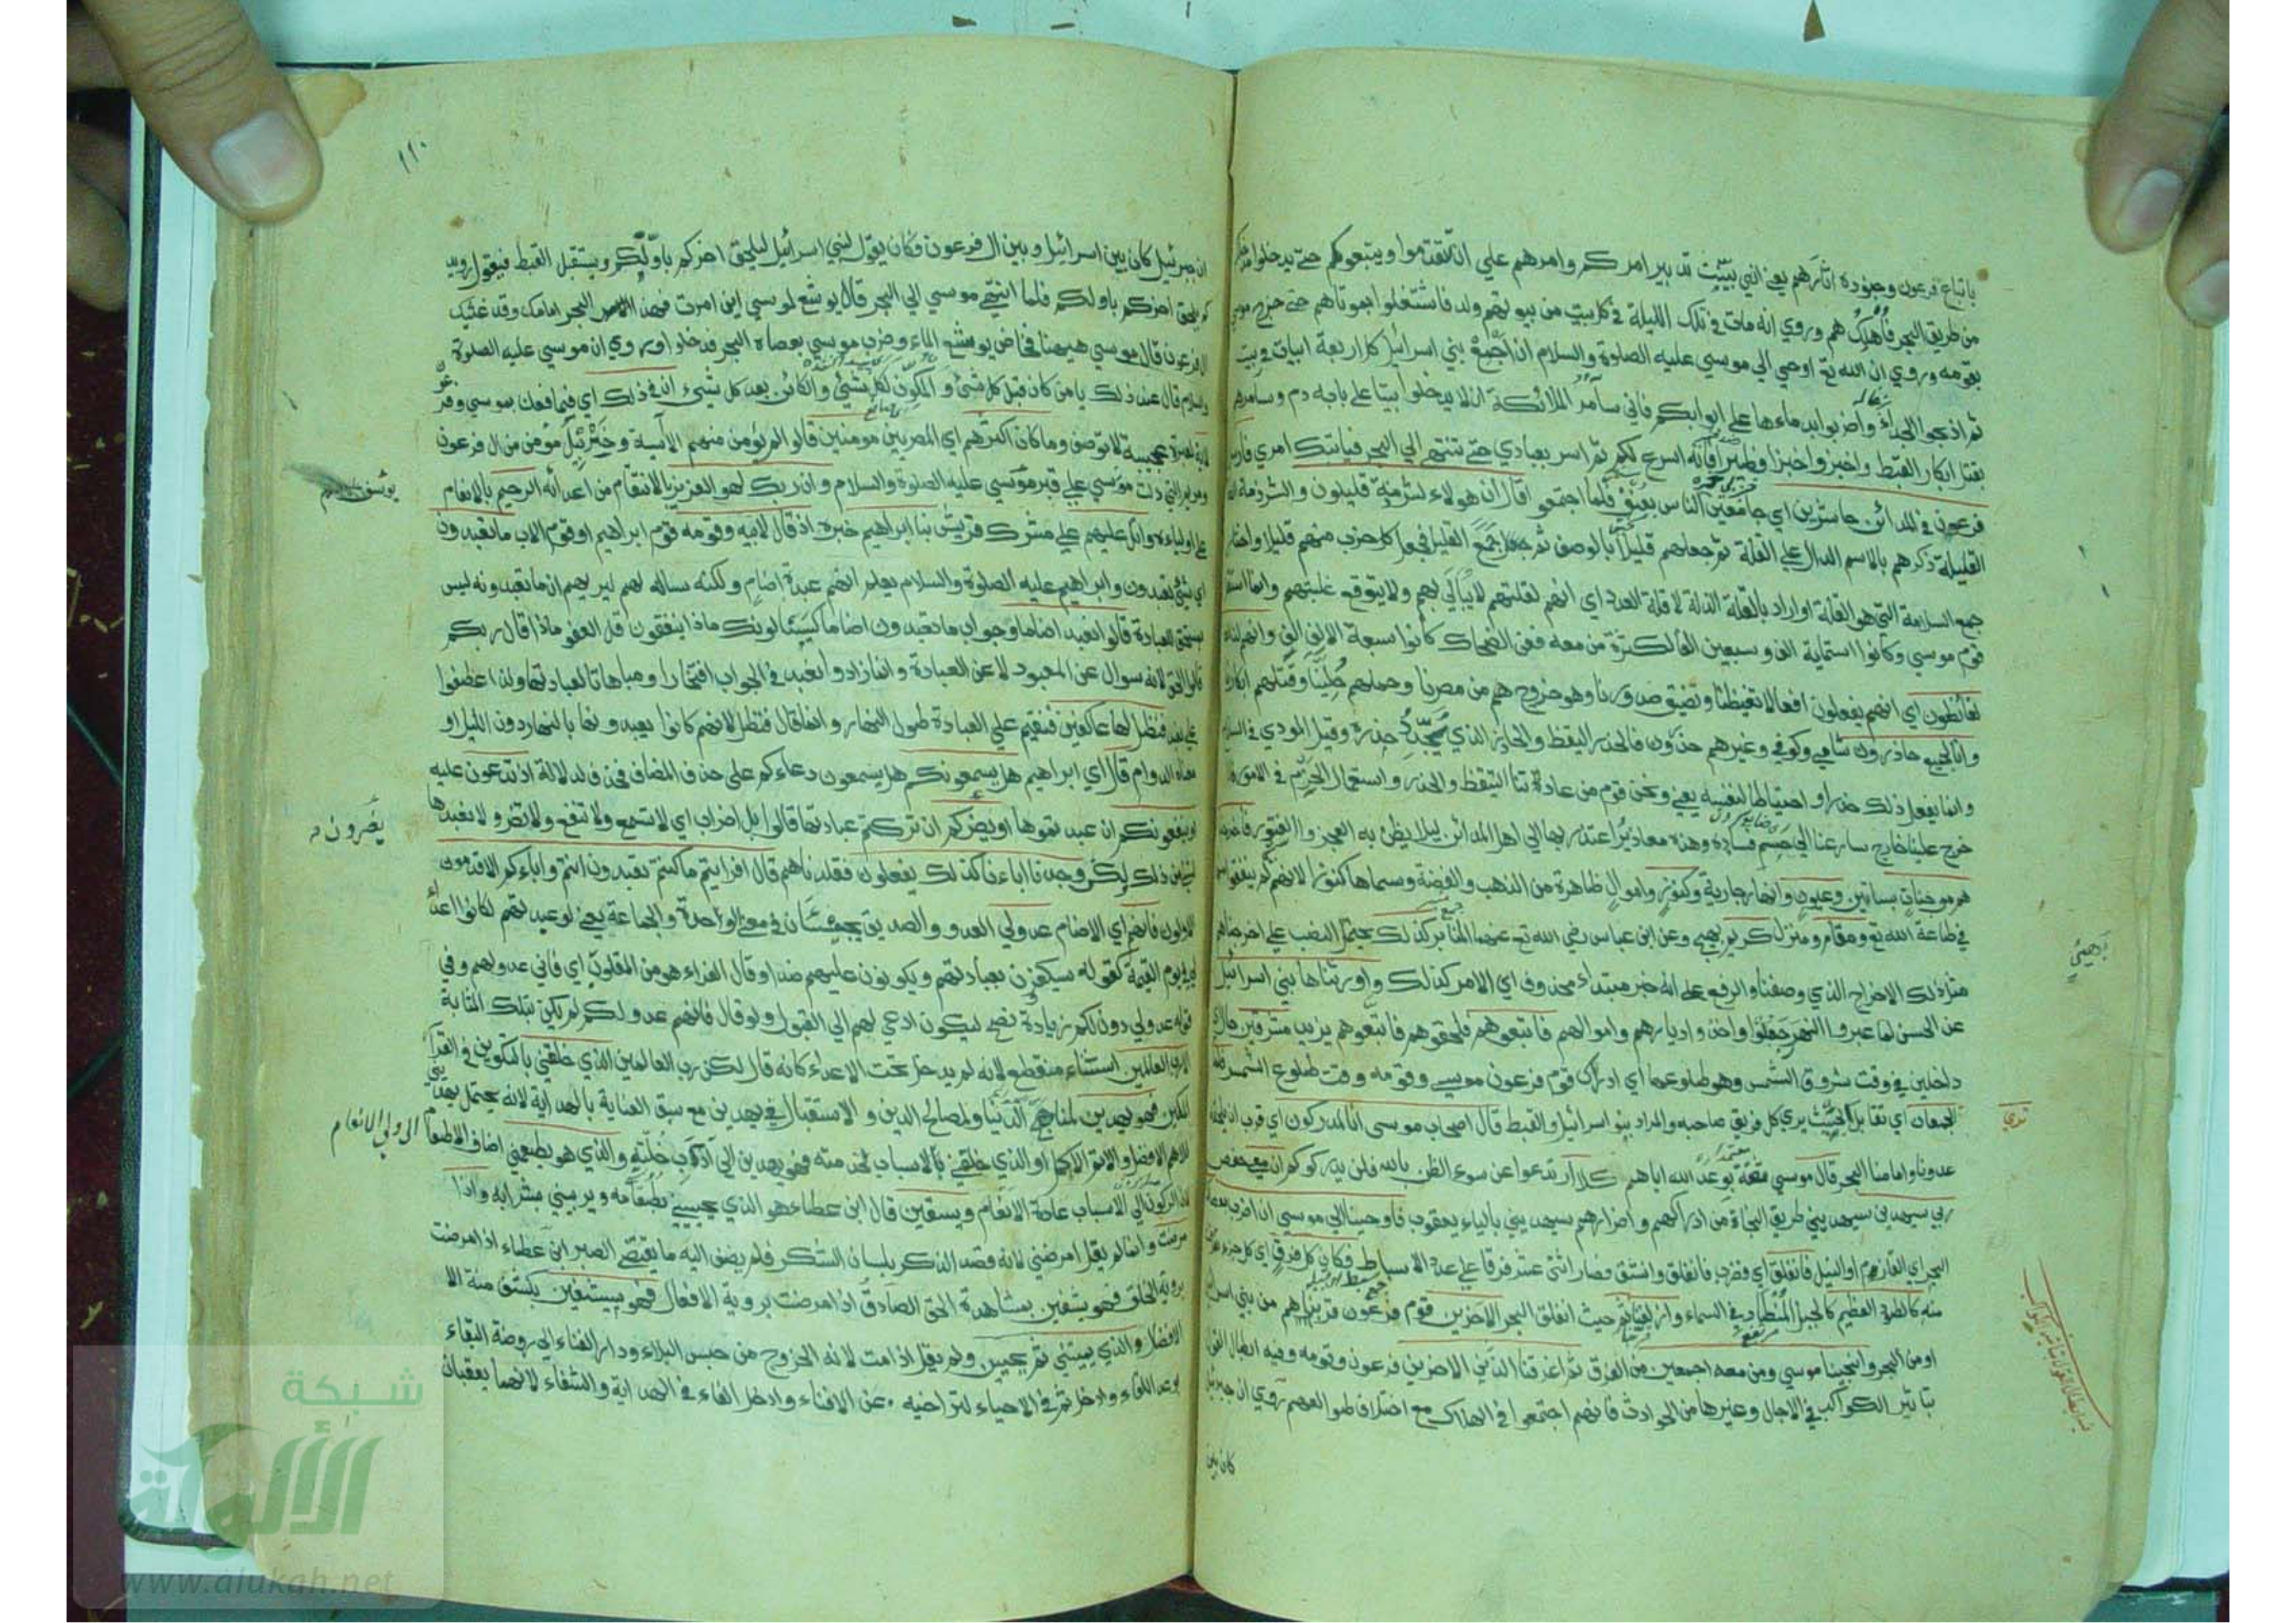 باتباع فرعون وجنوده اثارهم يعني اني بينت تدبير امركم وامرهم علي ان تتقدموا ويتبعوكم حتي يدخلوا مدخلكم
من طريق البحر فأهلكهم وروي انه مات في تلك الليلة في كل بيت من بيوتهم ولد فاشتغلوا بموتاهم حتي خرج موسي
بقومه وروي ان الله تع اوحي الي موسي عليه الصلوة والسلام ان اجمع بني اسرائيل كل اربعة ابيات في بيت
ثم اذبحوا الجداء واضربوا بدماءها علي ابوابكم فاني سآمر الملائكة ان لا يدخلوا بيتا علي بابه دم وسآمرهم
بقتل ابكار القبط واخبزوا خبزا فطيرا فانه اسرع لكم ثم اسر بعبادي حتي تنتهي الي البحر فياتيك امري فارسل
فرعون في المدائن حاشرين اي جامعين الناس بعنف فلما اجتمعوا قال ان هولاء لشرذمة قليلون والشرذمة الطائفة
القليلة ذكرهم بالاسم الدال علي القلة ثم جعلهم قليلا بالوصف ثم جمع القليل فجعل كل حزب منهم قليلا واختار
جمع السلامة التي هو القلة او اراد بالقلة الذلة لا قلة العدد اي انهم لقلتهم لا يبالي بهم ولا يتوقع غلبتهم وانما استقل
قوم موسي وكانوا ستماية الف وسبعين الفا لكثرة من معه فعن الضحاك كانوا سبعة الاف الف وانهم لنا
لغائظون اي انهم يفعلون افعالا تغيظنا وتضيق صدورنا وهو خروجهم من مصرنا وحملهم حلينا وقتلهم ابكارنا
وانا لجميع حاذرون شامي وكوفي وغيرهم حذرون فالحذر اليقظ والحاذر الذي يجدد حذره وقيل المودي في السلاح
وانما يفعل ذلك حذرا واحتياطا لنفسه يعني ونحن قوم من عادتنا التيقظ والحذر واستعمال الحزم في الامور فاذا
خرج علينا خارج سارعنا الي حسم فساده وهذه معاذير اعتذر بها الي اهل المدائن ليلا يظن به العجز والفتور فأخرجنا
هم من جنات بساتين وعيون وانهار جارية وكنوز واموال ظاهرة من الذهب والفضة وسماها كنوزا لانهم لم ينفقوا منها
في طاعة الله تع ومقام ومنزل كريم بهي وعن ابن عباس رضي الله تع عنهما المنابر كذلك يحتمل النصب علي اخرجناهم
مثل ذلك الاخراج الذي وصفنا والرفع علي انه خبر مبتداء محذوف اي الامر كذلك واورثناها بني اسرائيل
عن الحسن لما عبروا النهر رجعوا واخذوا ديارهم واموالهم فاتبعوهم فلحقوهم فاتبعوهم يزيد مشرقين حال
داخلين في وقت شروق الشمس وهو طلوعها اي ادرك قوم فرعون موسي وقومه وقت طلوع الشمس فلما
الجمعان اي تقابل بحيث يري كل فريق صاحبه والمراد بنو اسرائيل والقبط قال اصحاب موسي انا لمدركون اي قرب ان يلحقنا
عدونا وامامنا البحر قال موسي ثقة بوعد الله اياهم كلا ارتدعوا عن سوء الظن بالله فلن يدركوكم ان معي حفص
ربي سيهدين سيهديني طريق النجاة من ادراكهم واضرارهم سيهديني بالياء يعقوب فاوحينا الي موسي ان اضرب بعصاك
البحر اي القلزم او النيل فانفلق اي فضرب فانفلق وانشق فصار اثني عشر فرقا علي عدد الاسباط فكان كل فرق اي كل جزء
منه كالطود العظيم كالجبل المنطاد في السماء وازلفنا ثم حيث انفلق البحر الاخرين قوم فرعون قربناهم من بني اسرائيل
او من البحر وانجينا موسي ومن معه اجمعين من الغرق ثم اغرقنا الاخرين فرعون وقومه وفيه ابطال القول
بتاثير الكواكب في الاجال وغيرها من الحوادث فانهم اجتمعوا في الهلاك مع اختلاف طوالعهم روي ان جبريل
كان بين
بهي
ترآي
١١٠
ان جبرئيل كان بين اسرائيل وبين ال فرعون فكان يقول لبني اسرائيل ليلحق اخركم باولكم ويستقبل القبط فيقول رويد
كم يلحق اخركم باولكم فلما انتهي موسي الي البحر قال يوشع لموسي اين امرت فهذا البحر امامك وقد غشيك
ال فرعون قال موسي هيهنا فخاض يوشع الماء وضرب موسي بعصاه البحر فدخلوا وروي ان موسي عليه الصلوة
والسلام قال عند ذلك يا من كان قبل كل شئ والمكون لكل شئ والكائن بعد كل شئ ان في ذلك اي فيما فعلنا بموسي وفرعون
لاية لعبرة عجيبة لا توصف وما كان اكثرهم اي المصريين مومنين قالوا لم يؤمن منهم الا آسية وحزبئيل مؤمن من ال فرعون
ومريم التي دلت موسي علي قبر موسي عليه الصلوة والسلام وان ربك لهو العزيز بالانتقام من اعدائه الرحيم بالانعام
علي اولياءه واتل عليهم علي مشرك قريش نبا ابراهيم خبره اذ قال لابيه وقومه قوم ابراهيم او قوم الاب ما تعبدون
اي شئ تعبدون وابراهيم عليه الصلوة والسلام يعلم انهم عبدة اصنام ولكنه سالهم ليريهم ان ما تعبدونه ليس
بمستحق للعبادة قالوا نعبد اصناما وجواب ما تعبدون اصناما كيسئلونك ماذا ينفقون قل العفو ماذا قال ربكم
قالوا الحق لانه سوال عن المعبود لا عن العبادة وانما زادوا نعبد في الجواب افتخارا ومباهاتا لعبادتها ولذا عطفوا
علي نعبد فنظل لها عاكفين فنقيم علي العبادة طول النهار وانما قال فنظل لانهم كانوا يعبدونها بالنهار دون الليل او
معناه الدوام قال اي ابراهيم هل يسمعونكم هل يسمعون دعاءكم علي حذف المضاف فحذف لدلالة اذ تدعون عليه
او ينفعونكم ان عبدتموها او يضركم ان تركتم عبادتها قالوا بل اضراب اي لا تسمع ولا تنفع ولا تضر ولا نعبدها
لشئ من ذلك لكن وجدنا اباءنا كذلك يفعلون فقلدناهم قال افرايتم ما كنتم تعبدون انتم واباءكم الاقدمون
الاولون فانهم اي الاصنام عدو لي العدو والصديق يجيئان في معني الواحدة والجماعة يعني لو عبدتهم لكانوا اعداء
لي يوم القيمة كقوله سيكفرون بعبادتهم ويكونون عليهم ضدا وقال الفراء هو من المقلوب اي فاني عدو لهم وفي
قوله عدو لي دون لكم زيادة نصح ليكون ادعي لهم الي القبول ولو قال فانهم عدو لكم لم يكن بتلك المثابة
الا رب العالمين استثناء منقطع لانه لم يدخل تحت الاعداء كانه قال لكن رب العالمين الذي خلقني بالتكوين في القرار
المكين فهو يهدين لمناهج الدنيا ولمصالح الدين والاستقبال في يهدين مع سبق العناية بالهداية لانه يحتمل يهديني
للاهم الافضل والاتم الاكمل او الذي خلقني بالاسباب لخدمته فهو يهدين الي آداب خلته والذي هو يطعمني اضاف الاطعام الي ولي الانعام
لان الركون الي الاسباب عادة الانعام ويسقين قال ابن عطاء هو الذي يحييني بطعامه ويربيني بشرابه واذا
مرضت وانما لم يقل امرضني لانه قصد الذكر بلسان الشكر فلم يضف اليه ما يقتضي الصبر ابن عطاء اذا مرضت
بروية الخلق فهو يشفين بمشاهدة الحق الصادق اذا مرضت بروية الافعال فهو يشفين بكشف منة الا
الافضل والذي يميتني ثم يحيين ولم يقل اذا مت لانه الخروج من حبس البلاء ودار الفناء الي روضة البقاء
بوعد اللقاء وادخل ثم في الاحياء لتراخيه عن الافناء وادخل الفاء في الهداية والشفاء لانهما يعقبان
يوسف
يضرون
شبكة
الألوكة
www.alukah.net